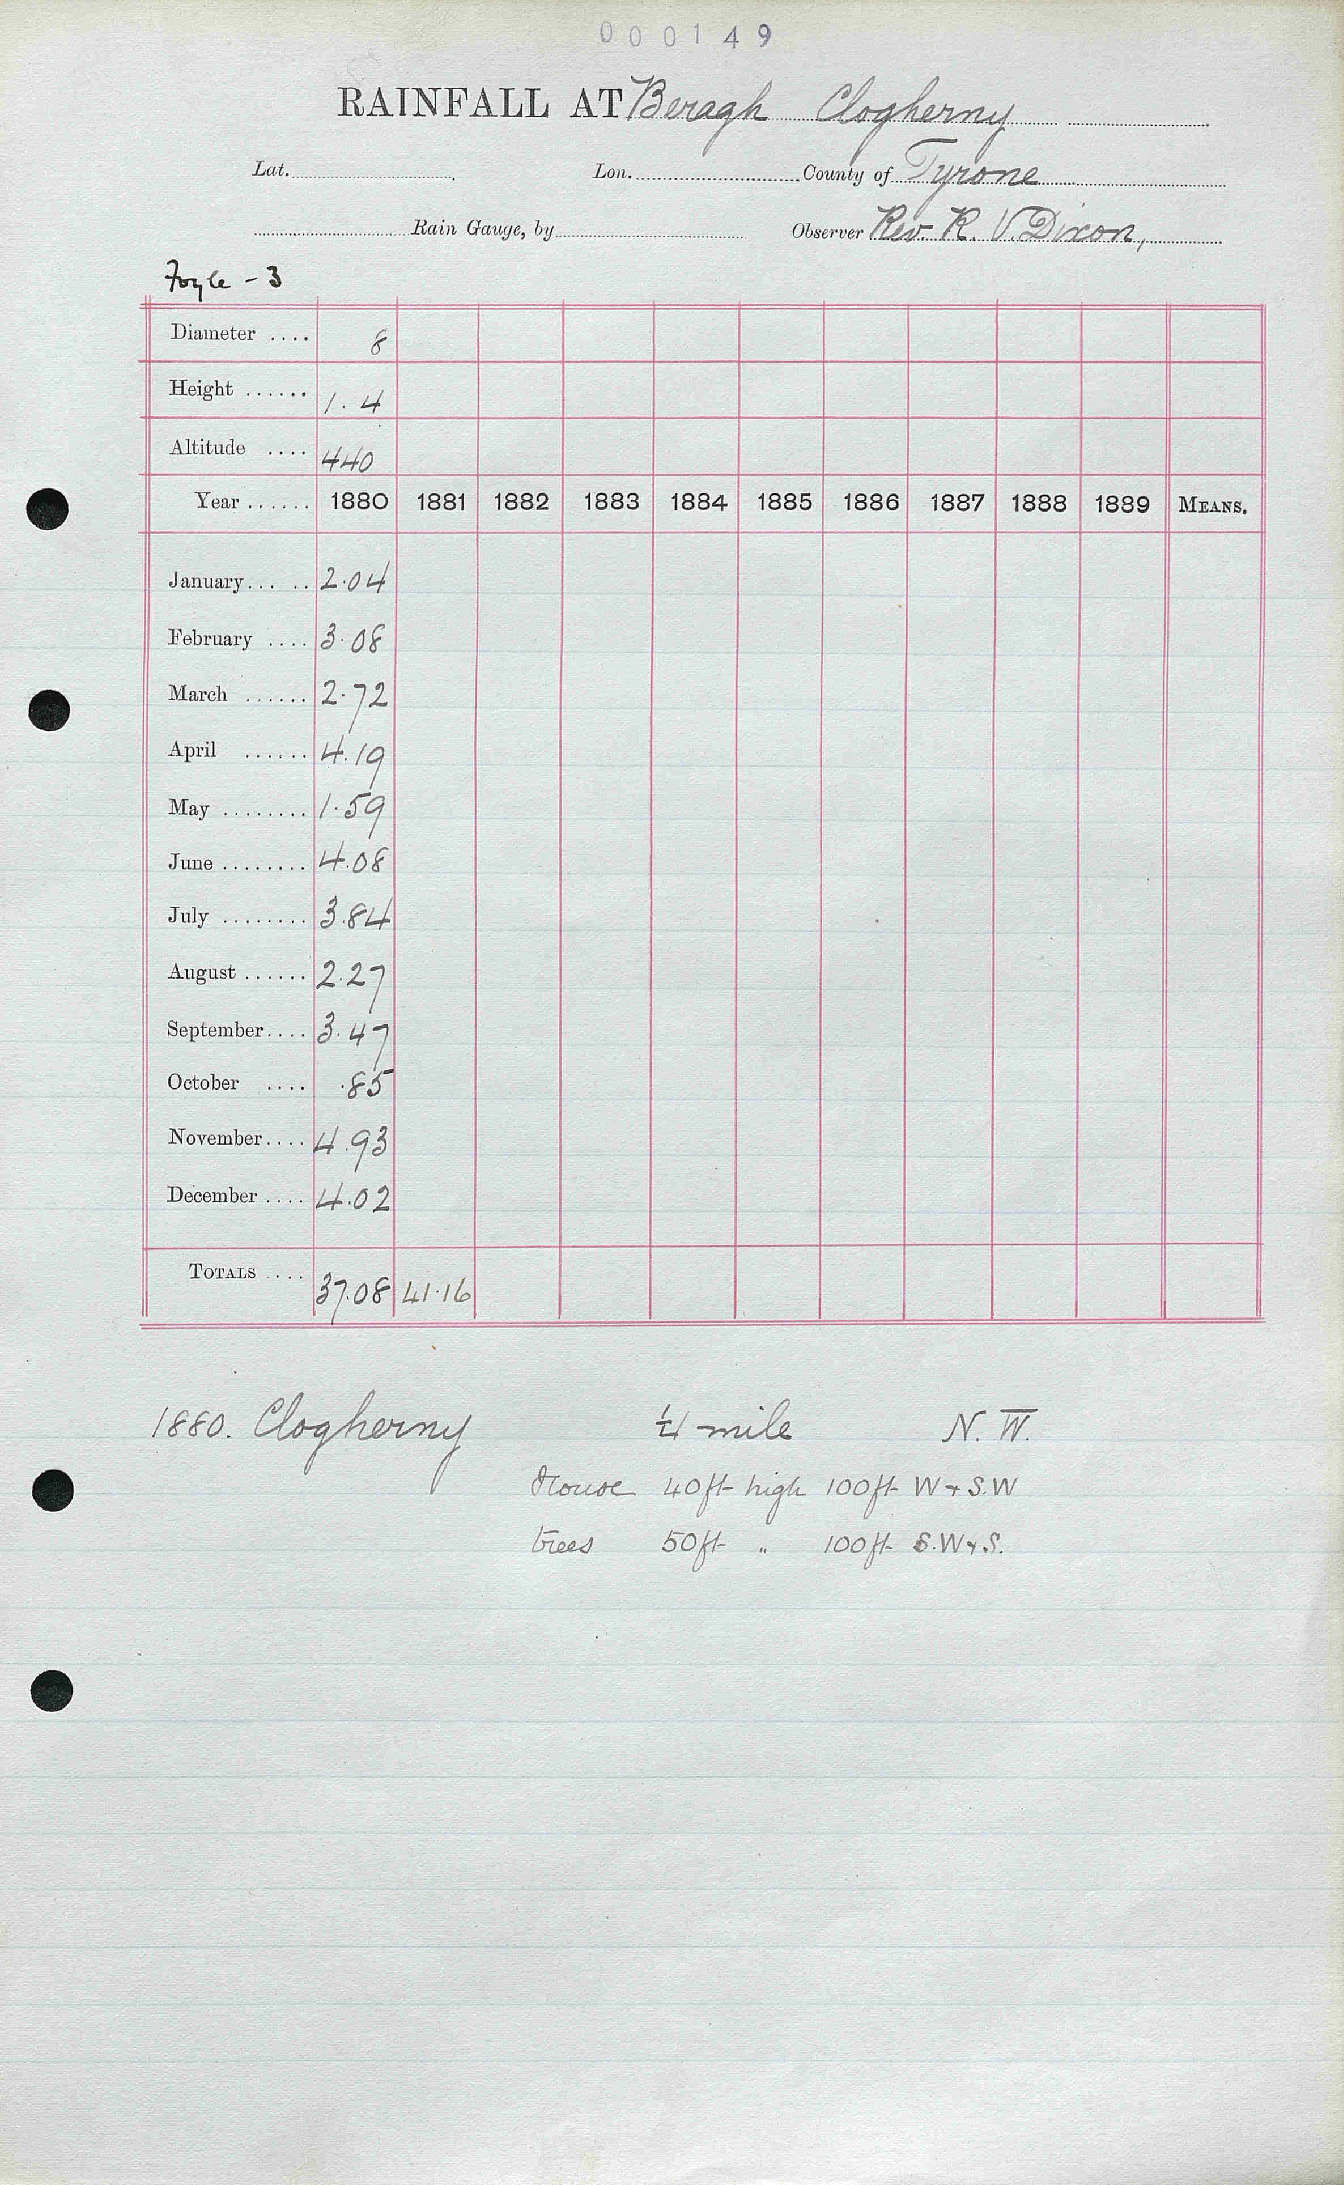 000149
RAINFALL AT Beragh Clogherny
Lat. Lon. County of Tyrone
Rain Gauge, by Observer Rev. R. V. Dixon,
Foyle - 3
Diameter .... 8
Height ...... 1.4
Altitude .... 440
Year ...... 1880 1881 1882 1883 1884 1885 1886 1887 1888 1889 MEANS.
January... .. 2.04
February .... 3.08
March ...... 2.72
April ...... 4.19
May ........ 1.59
June ........ 4.08
July ........ 3.84
August ...... 2.27
September.... 3.47
October .... .85
November.... 4.93
December .... 4.02
TOTALS .... 37.08 41.16
1880. Clogherny ¼ mile N.W.
House 40ft high 100ft W + S.W
trees 50ft " 100ft S.W + S.